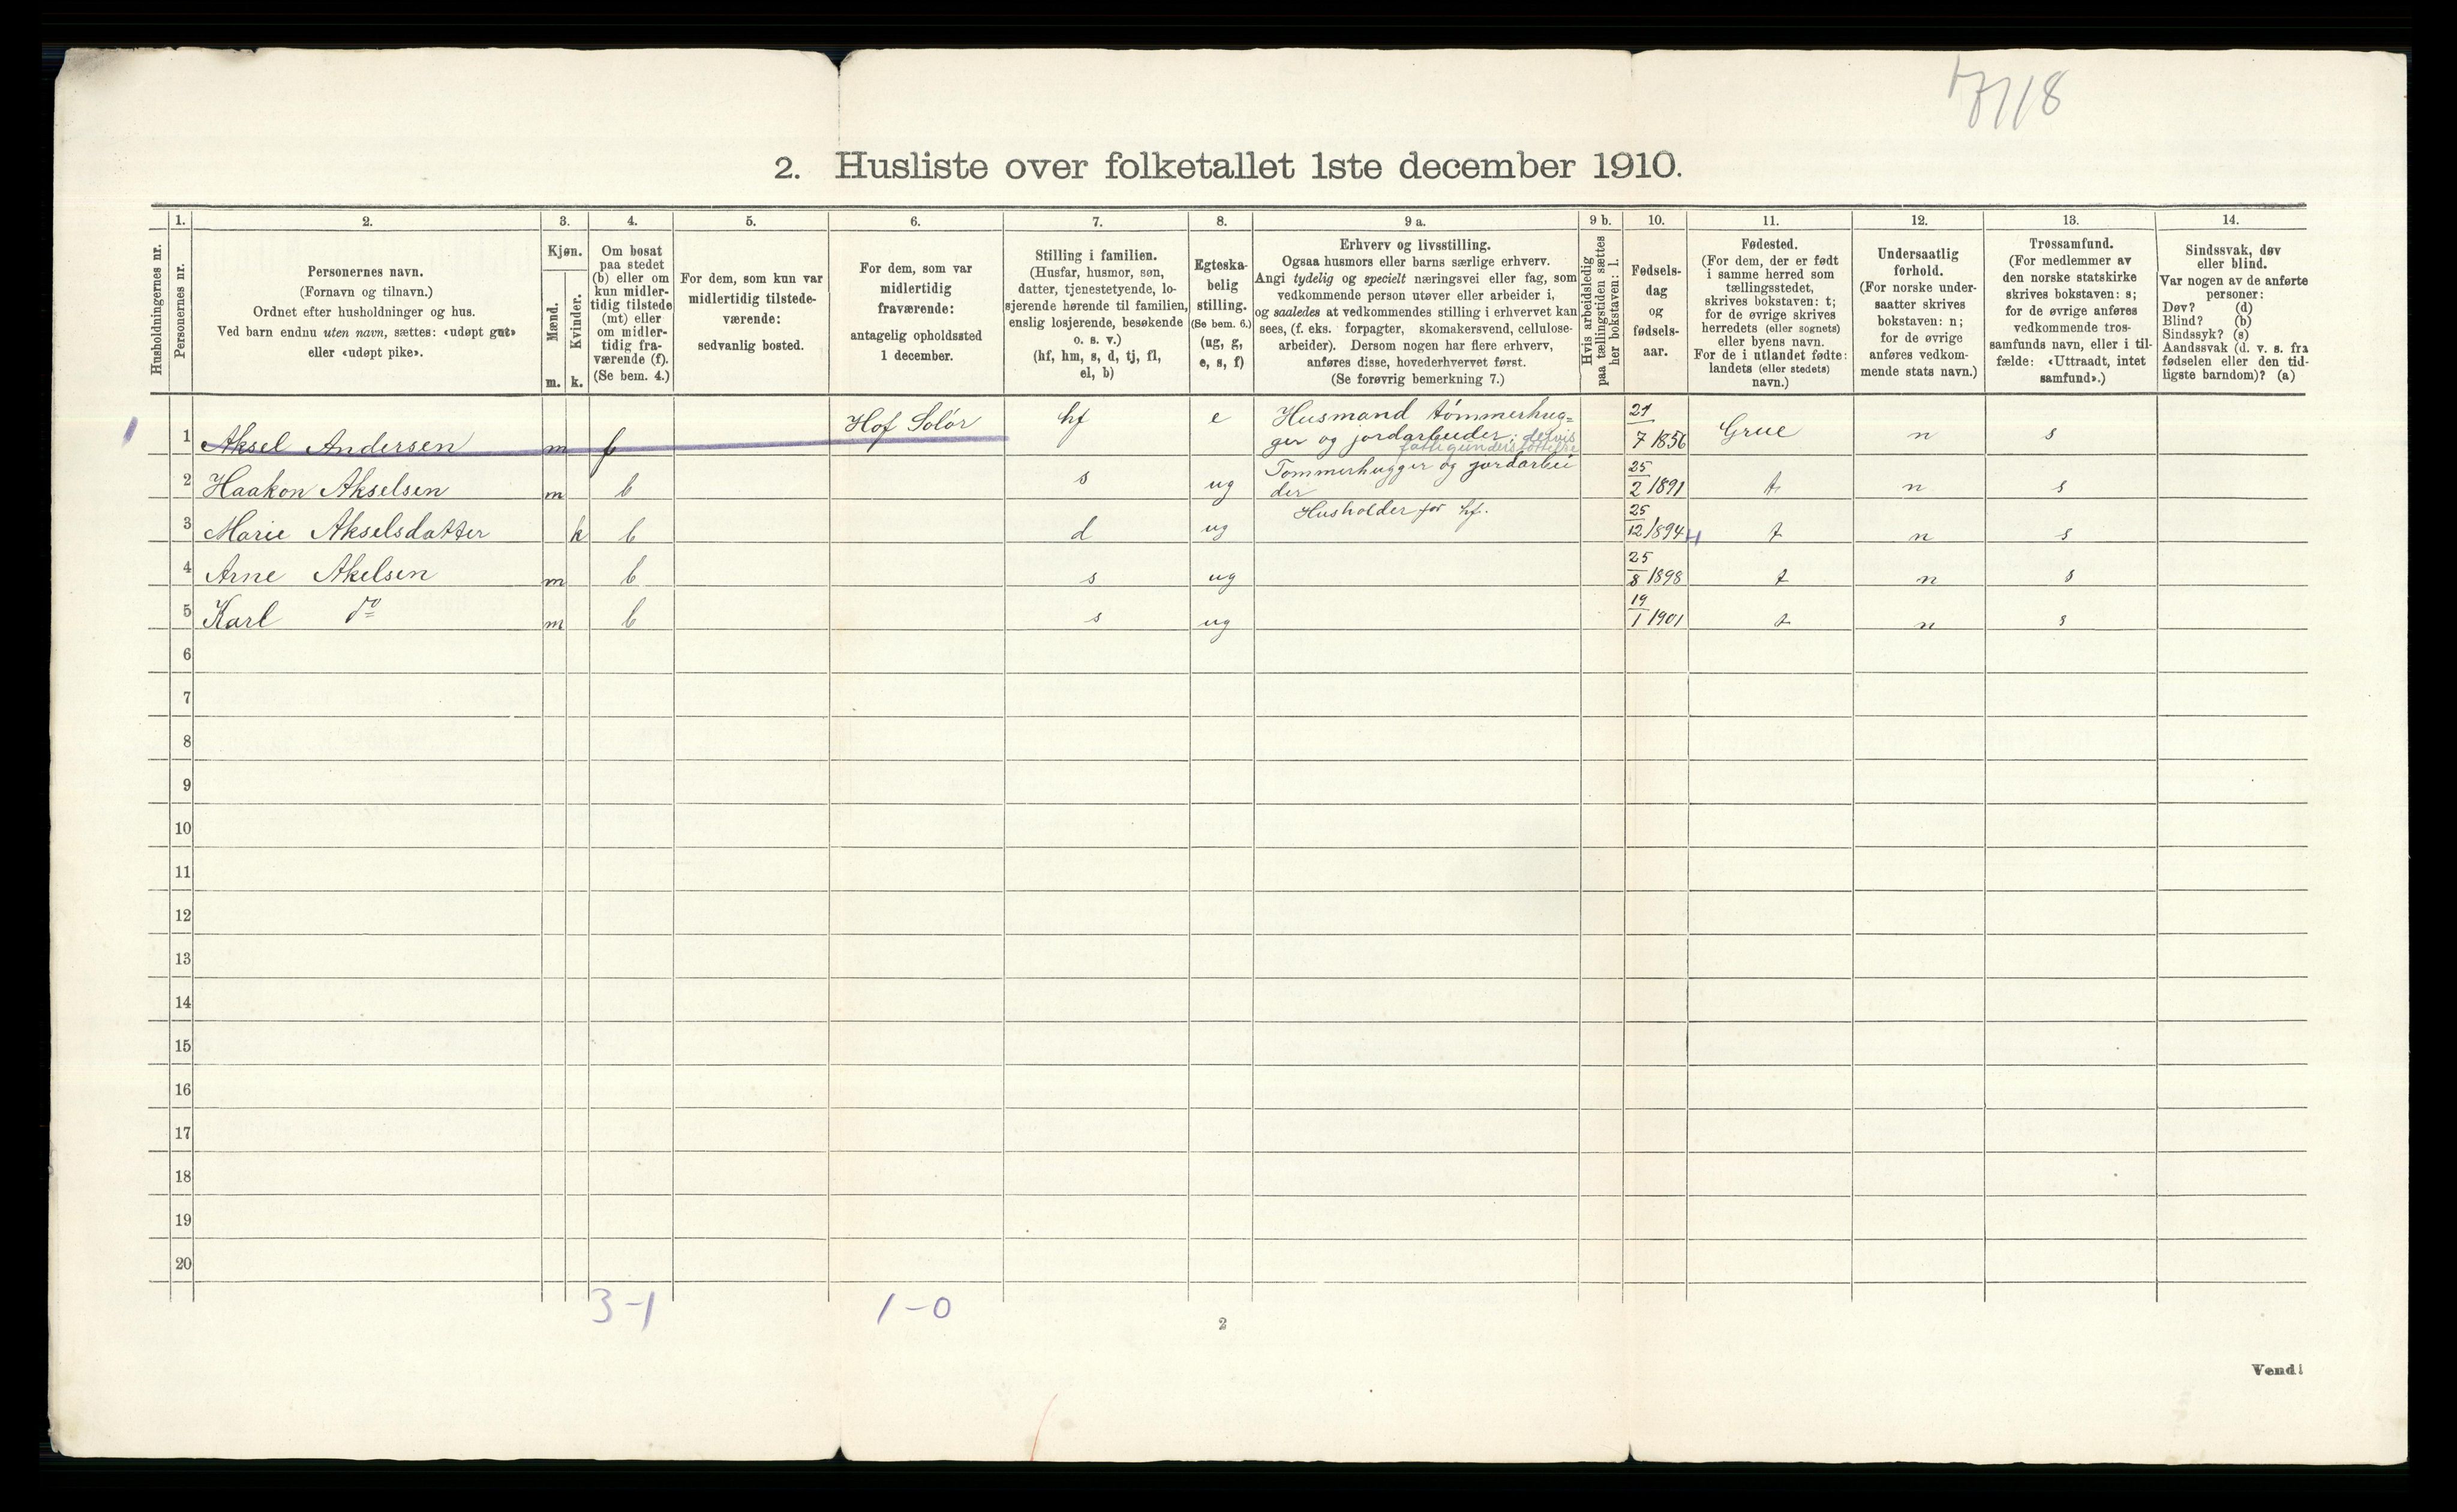 2. Husliste over folketallet 1ste december 1910.
Husholdningernes nr.
1.
Personernes nr.
2.
Personernes navn.
(Fornavn og tilnavn.)
Ordnet efter husholdninger og hus.
Ved barn endnu uten navn, sættes: «udøpt gut»
eller «udøpt pike».
3.
Kjøn.
Mænd.
m.
Kvinder.
k.
4.
Om bosat
paa stedet
(b) eller om
kun midler-
tidig tilstede
(mt) eller
om midler-
tidig fra-
værende (f).
(Se bem. 4.)
5.
For dem, som kun var
midlertidig tilstede-
værende:
sedvanlig bosted.
6.
For dem, som var
midlertidig
fraværende:
antagelig opholdssted
1 december.
7.
Stilling i familien.
(Husfar, husmor, søn,
datter, tjenestetyende, lo-
sjerende hørende til familien,
enslig losjerende, besøkende
o. s. v.)
(hf, hm, s, d, tj, fl,
el, b)
8.
Egteska-
belig
stilling.
(Se bem. 6.)
(ug, g,
e, s, f)
9 a.
Erhverv og livsstilling.
Ogsaa husmors eller barns særlige erhverv.
Angi tydelig og specielt næringsvei eller fag, som
vedkommende person utøver eller arbeider i,
og saaledes at vedkommendes stilling i erhvervet kan
sees, (f. eks. forpagter, skomakersvend, cellulose-
arbeider). Dersom nogen har flere erhverv,
anføres disse, hovederhvervet først.
(Se forøvrig bemerkning 7.)
9 b.
Hvis arbeidsledig
paa tællingstiden sættes
her bokstaven: l.
10.
Fødsels-
dag
og
fødsels-
aar.
11.
Fødested.
(For dem, der er født
i samme herred som
tællingsstedet,
skrives bokstaven: t;
for de øvrige skrives
herredets (eller sognets)
eller byens navn.
For de i utlandet fødte:
landets (eller stedets)
navn.)
12.
Undersaatlig
forhold.
(For norske under-
saatter skrives
bokstaven: n;
for de øvrige
anføres vedkom-
mende stats navn.)
13.
Trossamfund.
(For medlemmer av
den norske statskirke
skrives bokstaven: s;
for de øvrige anføres
vedkommende tros-
samfunds navn, eller i til-
fælde: «Uttraadt, intet
samfund».)
14.
Sindssvak, døv
eller blind.
Var nogen av de anførte
personer:
Døv? (d)
Blind? (b)
Sindssyk? (s)
Aandssvak (d. v. s. fra
fødselen eller den tid-
ligste barndom)? (a)
1 1 Aksel Andersen m f Hof Solør hf e Husmand tømmerhug=
ger og jordarbeider; delvis
fattigunderstøttelse 21/7 1856 Grue n s
2 Haakon Akselsen m b s ug Tømmerhugger og jordarbei
der 25/2 1891 t n s
3 Marie Akselsdatter k b d ug Husholder for hf. 25/12 1894 t n s
4 Arne Akelsen m b s ug 25/8 1898 t n s
5 Karl do m b s ug 19/1 1901 t n s
6
7
8
9
10
11
12
13
14
15
16
17
18
19
20
3-1 1-0
2
Vend!